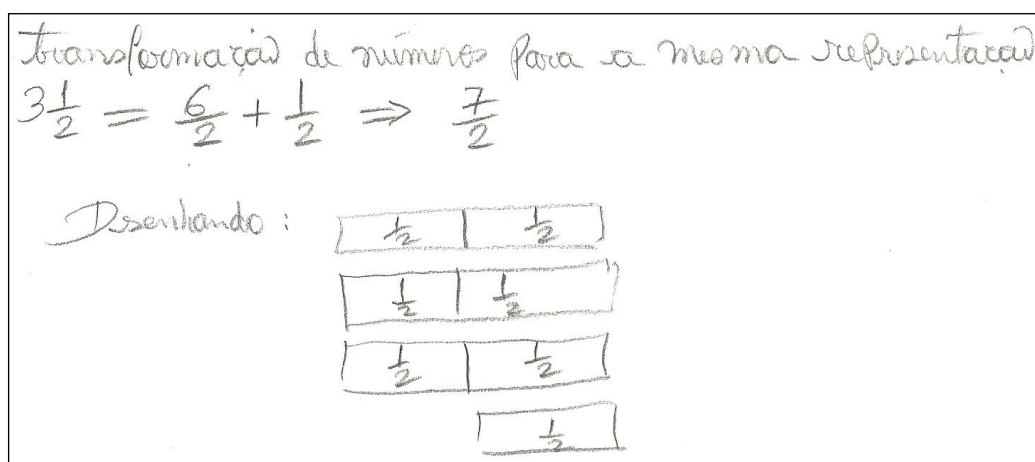 transformação de números Para a mesma representação
3 1/2 = 6/2 + 1/2 ⇒ 7/2
Dsenhando:
1/2 1/2
1/2 1/2
1/2 1/2
1/2